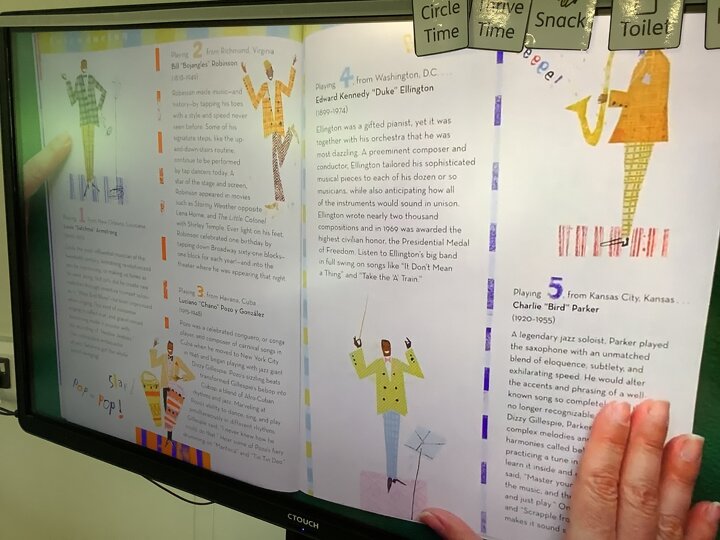 Circle
Time
Thrive
Time
Snack
Toilet
Playing 1 from New Orleans, Louisiana
Louis "Satchmo" Armstrong
Pop - POP!
slap!
Playing 2 from Richmond, Virginia
Bill "Bojangles" Robinson
(1878–1949)
Robinson made music—and
history—by tapping his toes
with a style and speed never
seen before. Some of his
signature steps, like the up
and-down-stairs routine,
continue to be performed
by tap dancers today. A
star of the stage and screen,
Robinson appeared in movies
such as Stormy Weather opposite
Lena Horne, and The Little Colonel
with Shirley Temple. Ever light on his feet,
Robinson celebrated one birthday by
tapping down Broadway sixty-one blocks—
one block for each year!—and into the
theater where he was appearing that night.
Playing 3 from Havana, Cuba
Luciano "Chano" Pozo y González
(1915–1948)
Pozo was a celebrated conguero, or conga
player, and composer of carnival songs in
Cuba when he moved to New York City
in 1946 and began playing with jazz giant
Dizzy Gillespie. Pozo's sizzling beats
transformed Gillespie's bebop into
Cubop, a blend of Afro-Cuban
rhythms and jazz. Marveling at
Pozo's ability to dance, sing, and play
simultaneously in different rhythms,
Gillespie said, "I never knew how he
could do that." Hear some of Pozo's fiery
drumming on "Manteca" and "Tin Tin Deo."
Playing 4 from Washington, D.C. . . .
Edward Kennedy "Duke" Ellington
(1899–1974)
Ellington was a gifted pianist, yet it was
together with his orchestra that he was
most dazzling. A preeminent composer and
conductor, Ellington tailored his sophisticated
musical pieces to each of his dozen or so
musicians, while also anticipating how all
of the instruments would sound in unison.
Ellington wrote nearly two thousand
compositions and in 1969 was awarded the
highest civilian honor, the Presidential Medal
of Freedom. Listen to Ellington's big band
in full swing on songs like "It Don't Mean
a Thing" and "Take the 'A' Train."
eeee!
Playing 5 from Kansas City, Kansas . . .
Charlie "Bird" Parker
(1920–1955)
A legendary jazz soloist, Parker played
the saxophone with an unmatched
blend of eloquence, subtlety, and
exhilarating speed. He would alter
the accents and phrasing of a well-
known song so completely
no longer recognizable
Dizzy Gillespie, Parker
complex melodies and
harmonies called be
practicing a tune in
learn it inside and
said, "Master your
the music, and th
and just play." On
and "Scrapple fro
makes it sound s
CTOUCH